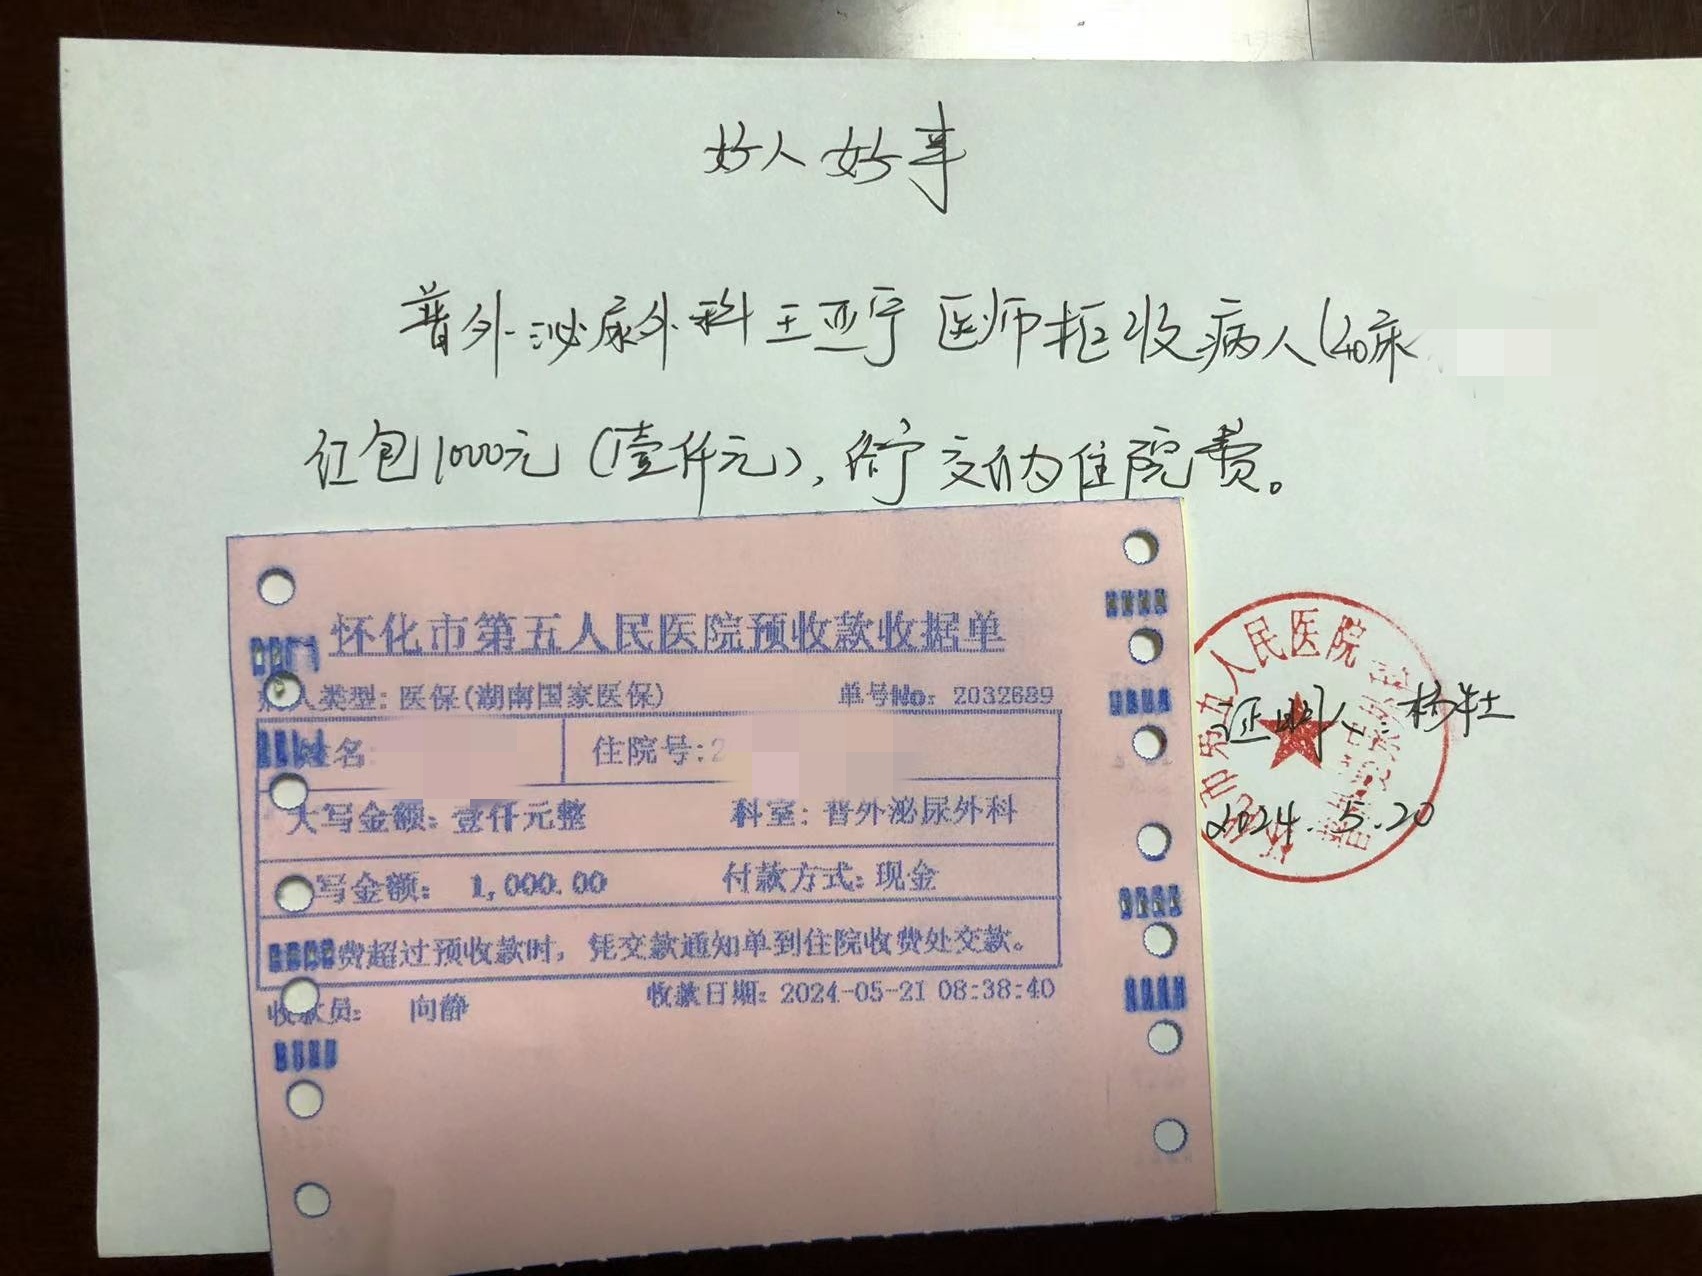 好人好事
普外泌尿外科王亚宁医师拒收病人(40床
红包1000元(壹仟元),给予交纳住院费。
怀化市第五人民医院预收款收据单
人类型:医保(湖南国家医保) 单号No:2032689
姓名: 住院号:2
大写金额:壹仟元整 科室:普外泌尿外科
写金额: 1,000.00 付款方式:现金
费超过预收款时,凭交款通知单到住院收费处交款。
收款员: 向静 收款日期:2024-05-21 08:38:40
市第五人民医院
证明人:杨
2024.5.20